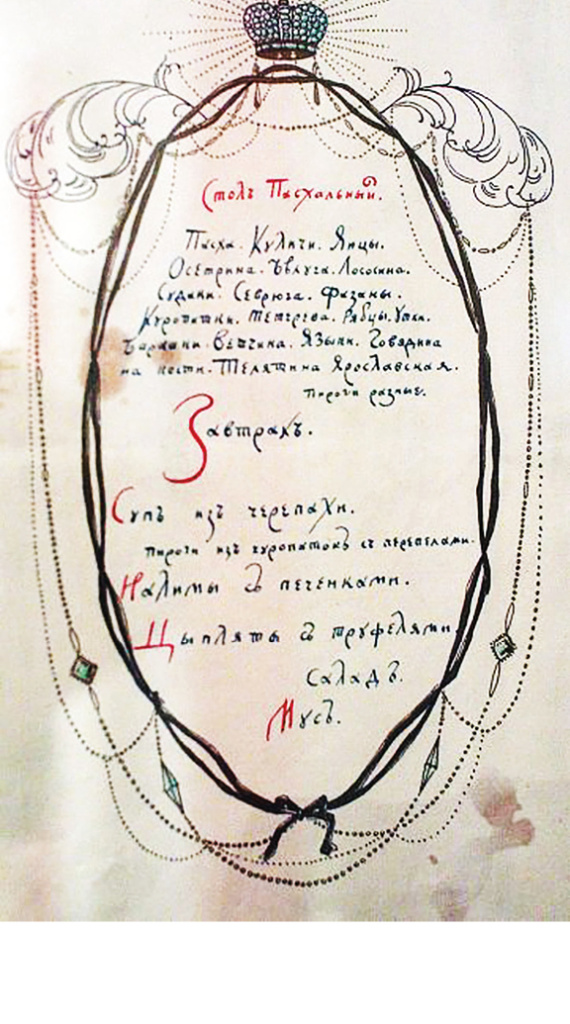 Столъ Пасхальный.
Пасха. Куличи. Яицы.
Осетрина. Бѣлуга. Лососина.
Судаки. Севрюга. Фазаны.
Куропатки. Тетерева. Рябцы. Утки.
Барашки. Ветчина. Языки. Говядина
на кости. Телятина Ярославская.
Пироги разные.
Завтракъ.
Супъ изъ черепахи.
Пироги изъ куропатокъ съ перепелами.
Налимы съ печенками.
Цыпляты съ труфелями
Саладъ.
Мусъ.